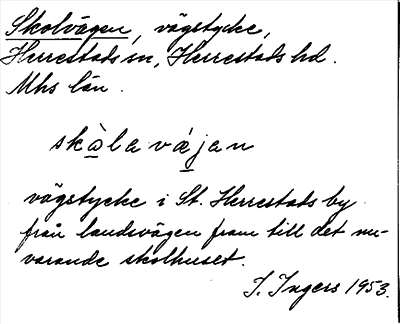 Skolvägen, vägstycke,
Herrestads sn, Herrestads hd.
Mhs län.
skàlavǽjan
vägstycke i St. Herrestads by
från landsvägen fram till det nu-
varande skolhuset.
I. Ingers 1953.